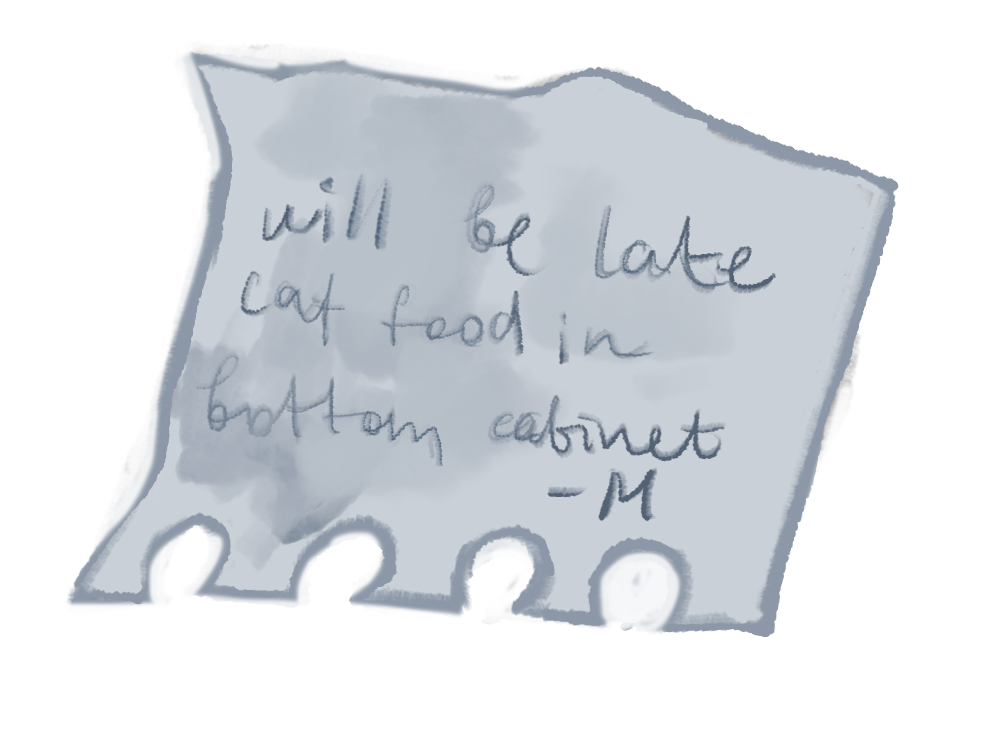 will be late
cat food in
bottom cabinet
-M